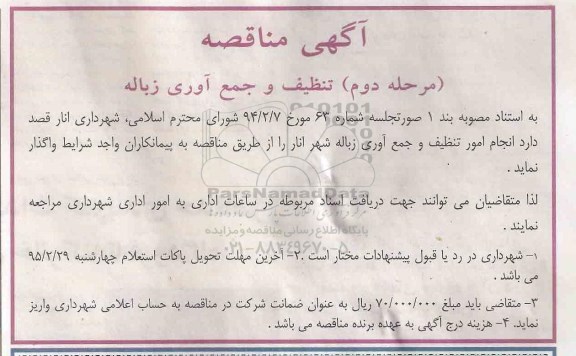 آگهی مناقصه
(مرحله دوم) تنظیف و جمع آوری زباله
به استناد مصوبه بند ۱ صورتجلسه شماره ۶۳ مورخ ۹۴/۲/۷ شورای محترم اسلامی، شهرداری انار قصد
دارد انجام امور تنظیف و جمع آوری زباله شهر انار را از طریق مناقصه به پیمانکاران واجد شرایط واگذار
نماید .
لذا متقاضیان می توانند جهت دریافت اسناد مربوطه در ساعات اداری به امور اداری شهرداری مراجعه
نمایند .
۱- شهرداری در رد یا قبول پیشنهادات مختار است .۲- آخرین مهلت تحویل پاکات استعلام چهارشنبه ۹۵/۲/۲۹
می باشد .
۳- متقاضی باید مبلغ ۷۰/۰۰۰/۰۰۰ ریال به عنوان ضمانت شرکت در مناقصه به حساب اعلامی شهرداری واریز
نماید. ۴- هزینه درج آگهی به عهده برنده مناقصه می باشد .
ParsNamadData
پایگاه اطلاع رسانی مناقصه و مزایده
۰۲۱-۸۸۳۴۹۶۷۰-۵